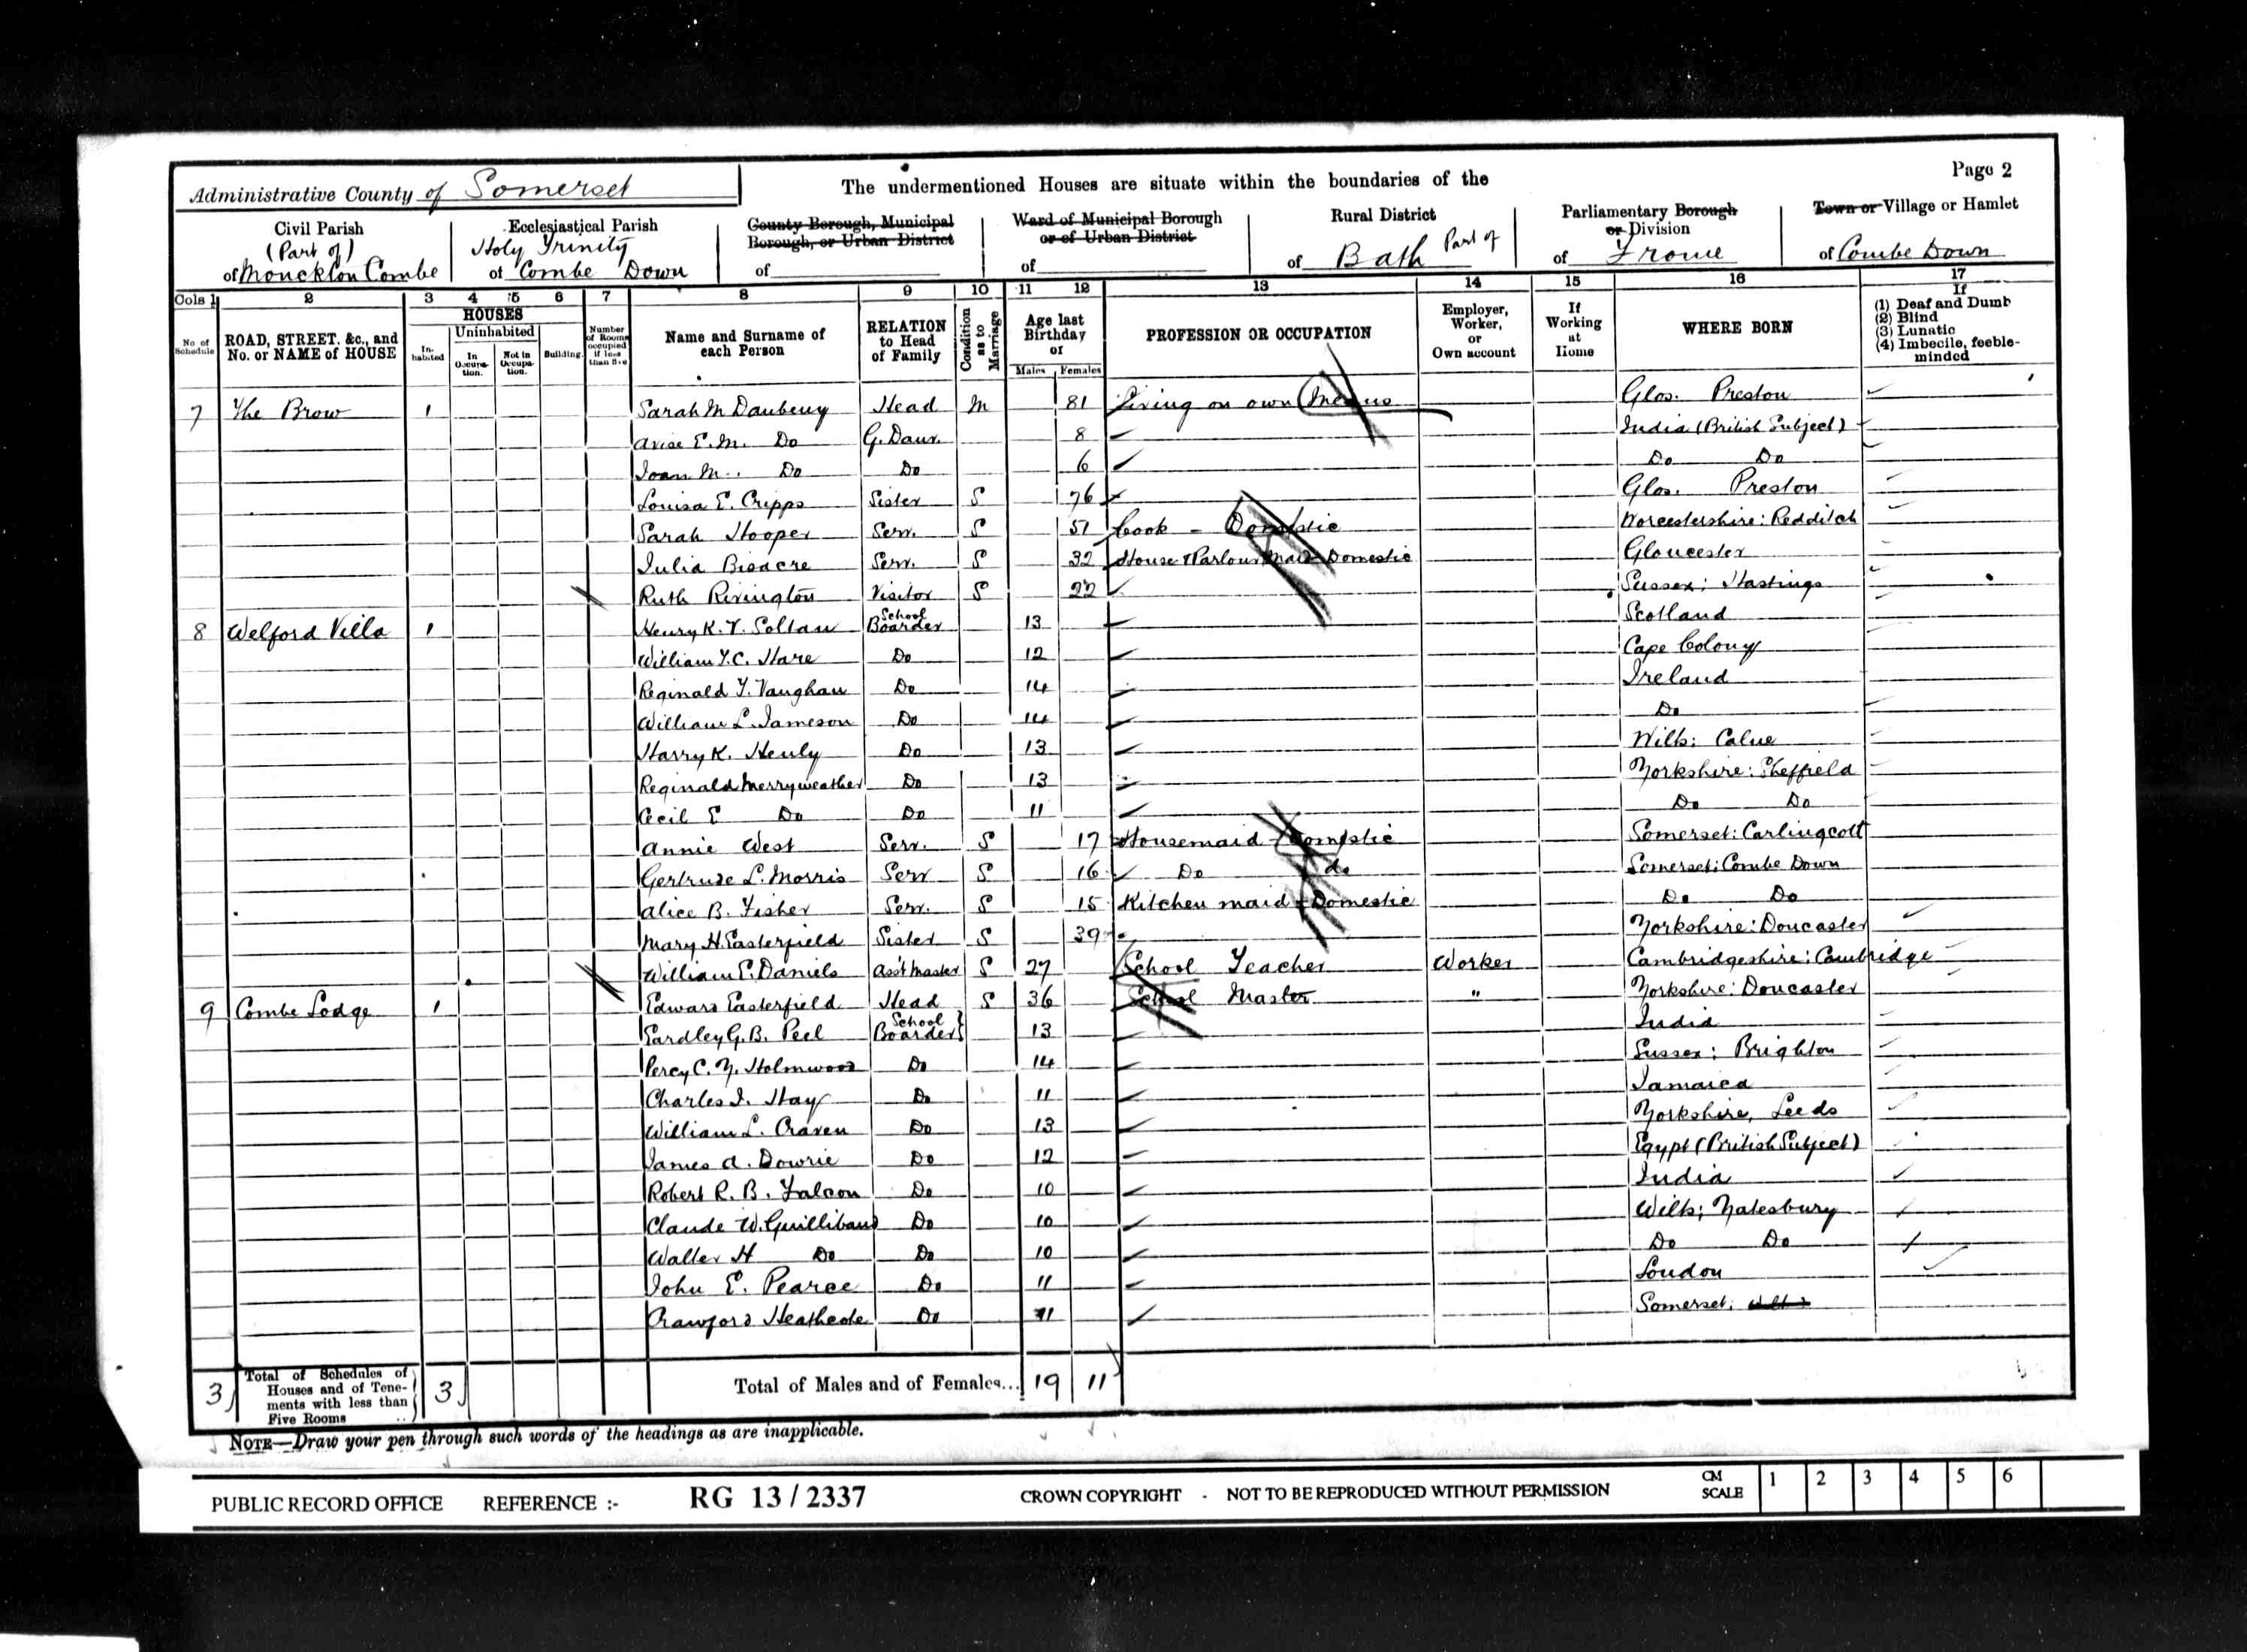 Page 2
Administrative County of Somerset
The undermentioned Houses are situate within the boundaries of the
Civil Parish (Part of) of Monckton Combe
Ecclesiastical Parish Holy Trinity of Combe Down
County Borough, Municipal Borough, or Urban District of
Ward of Municipal Borough or of Urban District of
Rural District of Bath Part of
Parliamentary Borough or Division of Frome
Town or Village or Hamlet of Combe Down
Cols 1 2 3 4 5 6 7 8 9 10 11 12 13 14 15 16 17
No. of Schedule
ROAD, STREET, &c., and No. or NAME of HOUSE
HOUSES
Inhabited
Uninhabited
In Occupation.
Not in Occupation.
Building.
Number of Rooms occupied if less than five
Name and Surname of each Person
RELATION to Head of Family
Condition as to Marriage
Age last Birthday of
Males Females
PROFESSION OR OCCUPATION
Employer, Worker, or Own account
If Working at Home
WHERE BORN
If (1) Deaf and Dumb (2) Blind (3) Lunatic (4) Imbecile, feeble-minded
7 The Brow 1 Sarah M Daubeny Head M 81 Living on own Means Glos. Preston
Avise E. M. Do G. Daur. 8 India (British Subject)
Joan M. Do Do 6 Do Do
Louisa E. Cripps Sister S 76 Glos. Preston
Sarah Hooper Serv. S 51 Cook - Domestic Worcestershire: Redditch
Julia Bisacre Serv. S 32 House & Parlour Maid Domestic Gloucester
Ruth Rivington Visitor S 22 Sussex: Hastings
8 Welford Villa 1 Henry K. V. Soltau School Boarder 13 Scotland
William Y. C. Hare Do 12 Cape Colony
Reginald Y. Vaughan Do 14 Ireland
William L. Jameson Do 14 Do
Harry K. Henly Do 13 Wilts: Calne
Reginald Merryweather Do 13 Yorkshire: Sheffield
Cecil E Do Do 11 Do Do
Annie West Serv. S 17 Housemaid - Domestic Somerset: Carlingcott
Gertrude L. Morris Serv S 16 Do do Somerset: Combe Down
Alice B. Fisher Serv. S 15 Kitchen maid - Domestic Do Do
Mary H. Easterfield Sister S 39 Yorkshire: Doncaster
William E. Daniels Ass't Master S 27 School Teacher Worker Cambridgeshire: Cambridge
9 Combe Lodge 1 Edward Easterfield Head S 36 School Master " Yorkshire: Doncaster
Eardley G. B. Peel School Boarder} 13 India
Percy C. Y. Holmwood Do 14 Sussex: Brighton
Charles I. Hay Do 11 Jamaica
William L. Craven Do 13 Yorkshire, Leeds
James A. Dowrie Do 12 Egypt (British Subject)
Robert R. B. Falcon Do 10 India
Claude W. Guillibaud Do 10 Wilts; Yatesbury
Walter H Do Do 10 Do Do
John E. Pearce Do 11 London
Crawford Heathcote Do 11 Somerset:
3 Total of Schedules of Houses and of Tenements with less than Five Rooms 3
Total of Males and of Females... 19 11
NOTE—Draw your pen through such words of the headings as are inapplicable.
PUBLIC RECORD OFFICE REFERENCE :- RG 13 / 2337 CROWN COPYRIGHT - NOT TO BE REPRODUCED WITHOUT PERMISSION CM SCALE 1 2 3 4 5 6